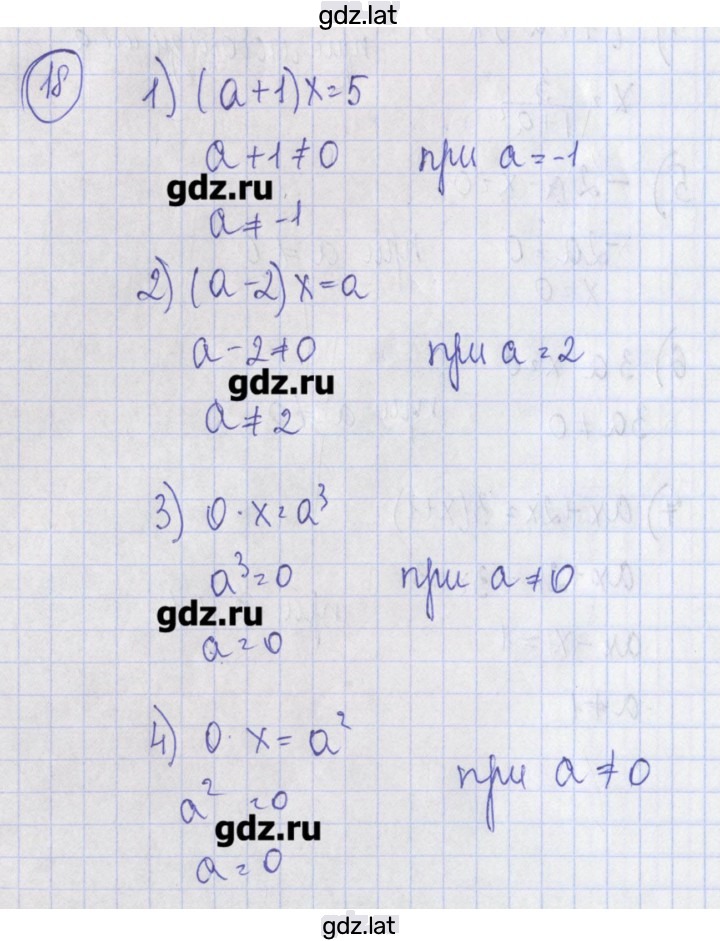 gdz.lat
18
1) (a+1)x=5
a+1≠0 при a=-1
gdz.ru
a≠-1
2) (a-2)x=a
a-2≠0 при a=2
gdz.ru
a≠2
3) 0·x=a³
a³=0 при a≠0
gdz.ru
a=0
4) 0·x=a²
a²=0 при a≠0
gdz.ru
a=0
gdz.lat